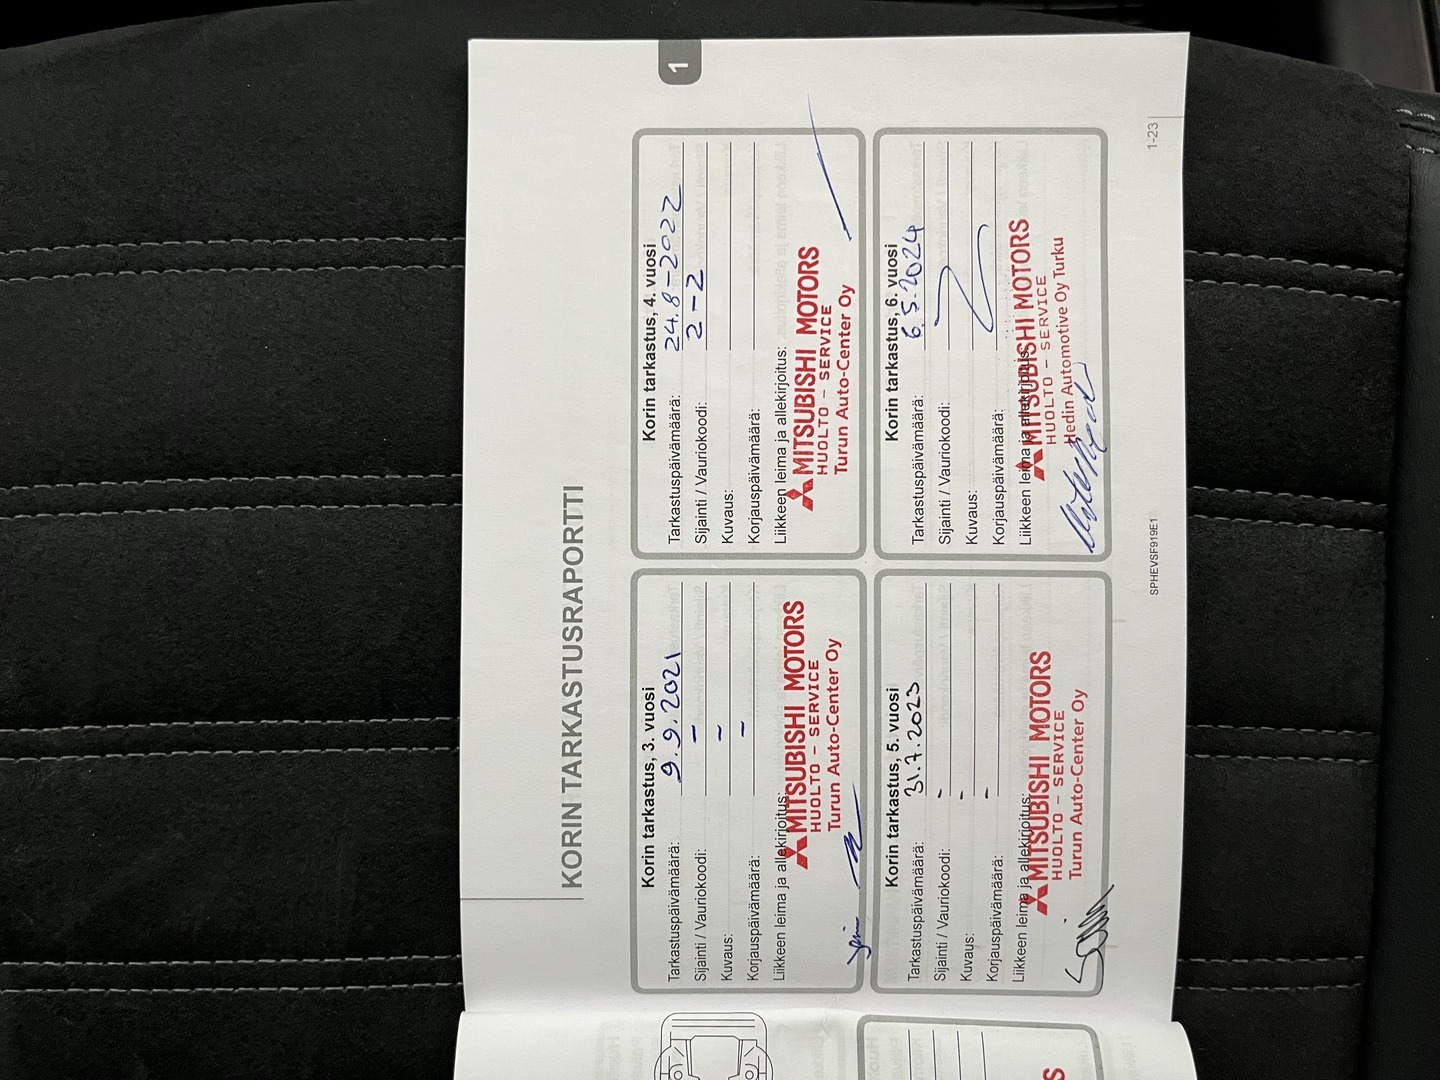 1
KORIN TARKASTUSRAPORTTI
Korin tarkastus, 3. vuosi
Tarkastuspäivämäärä: 9.9.2021
Sijainti / Vauriokoodi: -
Kuvaus: ~
Korjauspäivämäärä: ~
Liikkeen leima ja allekirjoitus:
MITSUBISHI MOTORS
HUOLTO – SERVICE
Turun Auto-Center Oy
Korin tarkastus, 4. vuosi
Tarkastuspäivämäärä: 24.8-2022
Sijainti / Vauriokoodi: 2-2
Kuvaus:
Korjauspäivämäärä:
Liikkeen leima ja allekirjoitus:
MITSUBISHI MOTORS
HUOLTO – SERVICE
Turun Auto-Center Oy
Korin tarkastus, 5. vuosi
Tarkastuspäivämäärä: 31.7.2023
Sijainti / Vauriokoodi: -
Kuvaus: -
Korjauspäivämäärä: -
Liikkeen leima ja allekirjoitus:
MITSUBISHI MOTORS
HUOLTO – SERVICE
Turun Auto-Center Oy
Korin tarkastus, 6. vuosi
Tarkastuspäivämäärä: 6.5.2024
Sijainti / Vauriokoodi:
Kuvaus:
Korjauspäivämäärä:
Liikkeen leima ja allekirjoitus:
MITSUBISHI MOTORS
HUOLTO – SERVICE
Hedin Automotive Oy Turku
SPHEVSF919E1
1-23